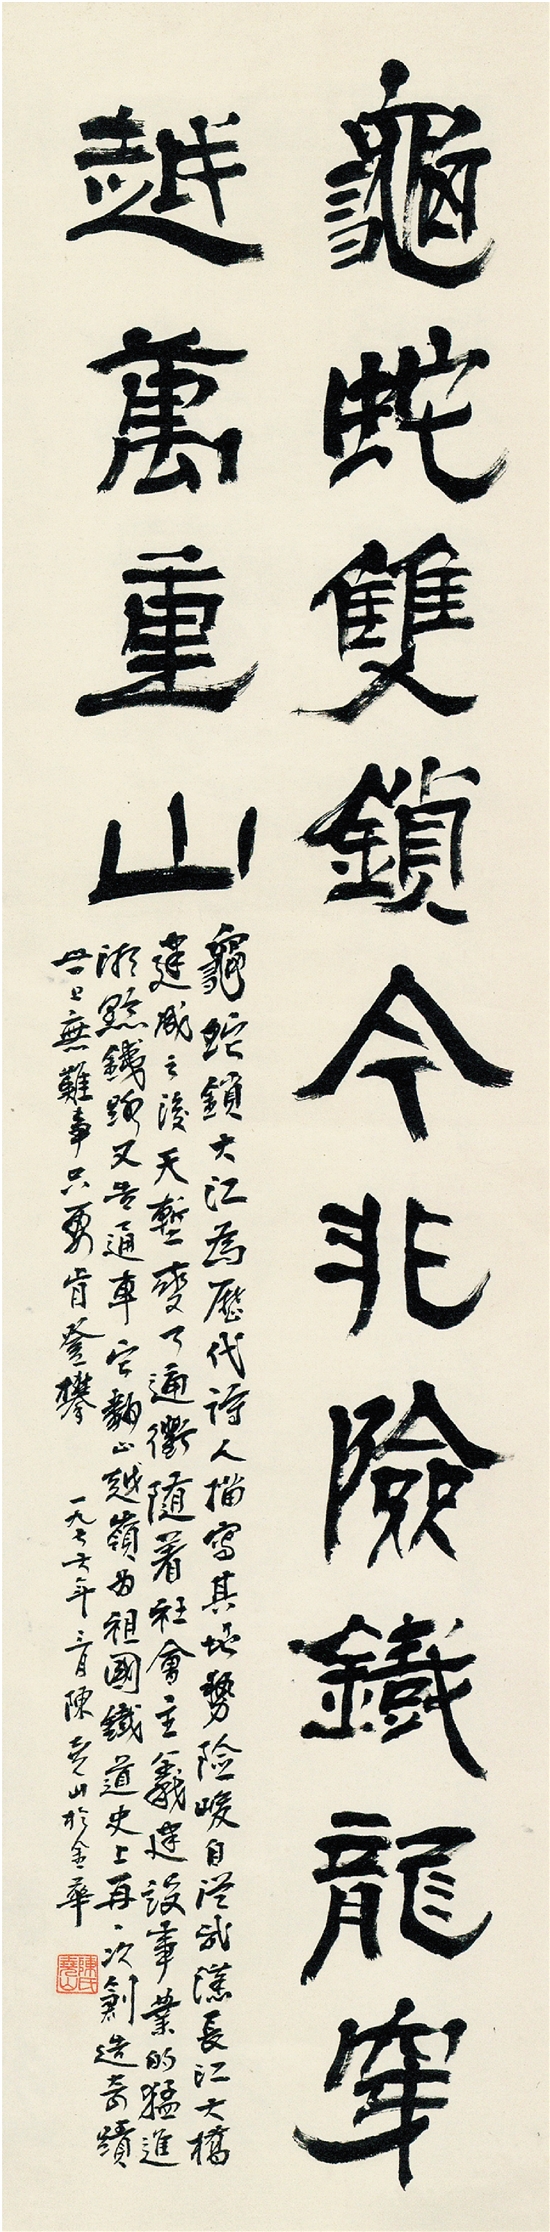 龜蛇雙鎖今非險鐵龍穿
越萬重山
龜蛇鎖大江為歷代詩人描寫其地勢險峻自從武漢長江大橋
建成之後天塹變了通衢隨着社會主義建設事業的猛進
湘黔鐵路又告通車它翻山越嶺為祖國鐵道史上再一次創造奇蹟
世上無難事只要肯登攀
一九七六年三月陳堯山於金華
陳氏堯山